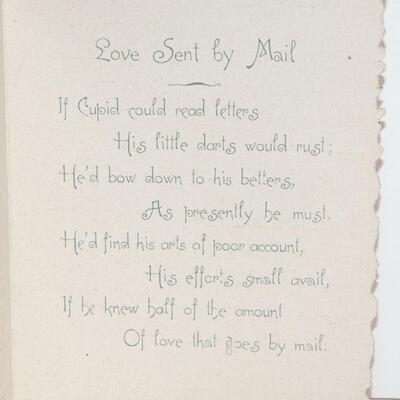 Love Sent by Mail
If Cupid could read letters
His little darts would rust;
He'd bow down to his betters,
As presently he must.
He'd find his arts of poor account,
His efforts small avail,
If he knew half of the amount
Of love that goes by mail.